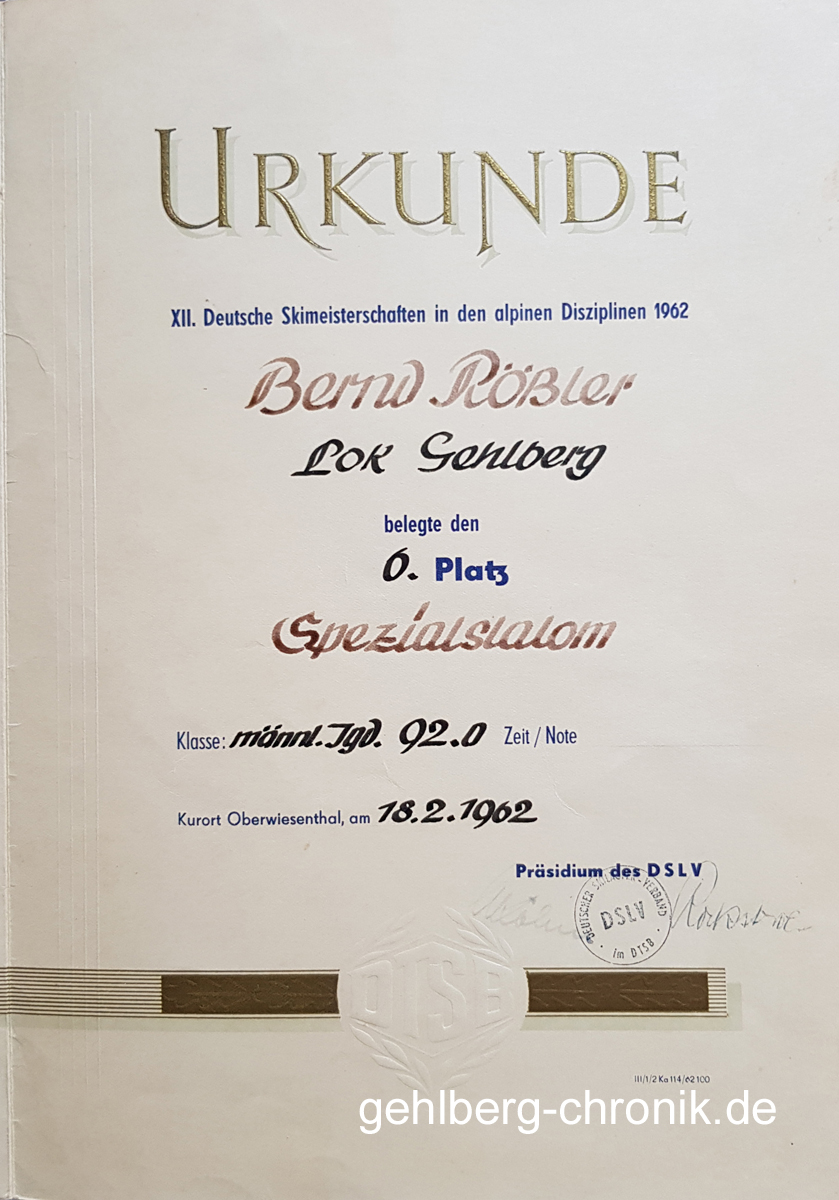 URKUNDE
XII. Deutsche Skimeisterschaften in den alpinen Disziplinen 1962
Bernd Rößler
Lok Gehlberg
belegte den
6. Platz
Spezialslalom
Klasse: männl. Jgd. 92.0 Zeit / Note
Kurort Oberwiesenthal, am 18.2.1962
Präsidium des DSLV
DEUTSCHER SKILÄUFER-VERBAND
DSLV
im DTSB
DTSB
III/1/2 Ka 114/62 100
gehlberg-chronik.de